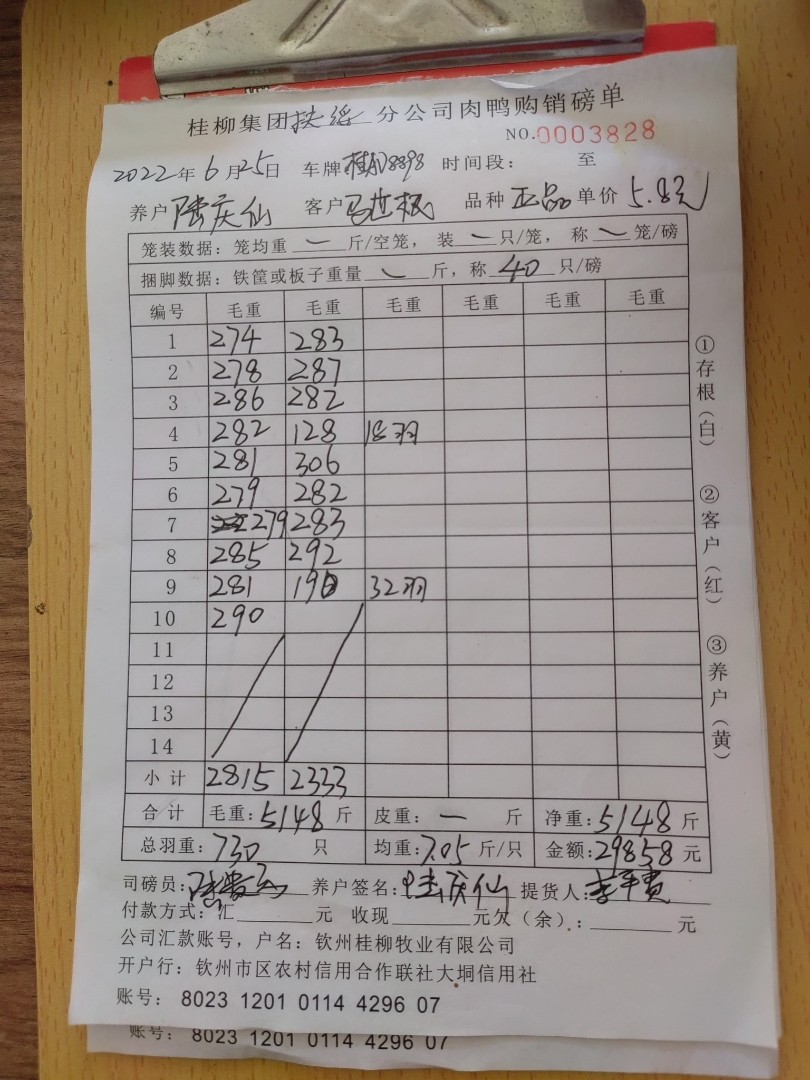 桂柳集团扶绥分公司肉鸭购销磅单
NO.0003828
2022年6月25日 车牌 8398 时间段： 至
养户 陆庆仙 客户 马世根 品种 正品 单价 5.8元
笼装数据：笼均重 一 斤/空笼，装 一 只/笼，称 一 笼/磅
捆脚数据：铁筐或板子重量 一 斤，称 40 只/磅
编号 毛重 毛重 毛重 毛重 毛重 毛重
1 274 283
2 278 287
3 286 282
4 282 128 18羽
5 281 306
6 279 282
7 279 283
8 285 292
9 281 190 32羽
10 290
11
12
13
14
小计 2815 2333
合计 毛重：5148斤 皮重：一 斤 净重：5148斤
总羽重：730 只 均重：7.05斤/只 金额：29858元
司磅员： 养户签名：陆庆仙 提货人：
付款方式：汇 元 收现 元欠（余）： 元
公司汇款账号，户名：钦州桂柳牧业有限公司
开户行：钦州市区农村信用合作联社大垌信用社
账号：8023 1201 0114 4296 07
账号：8023 1201 0114 4296 07
①存根（白）
②客户（红）
③养户（黄）